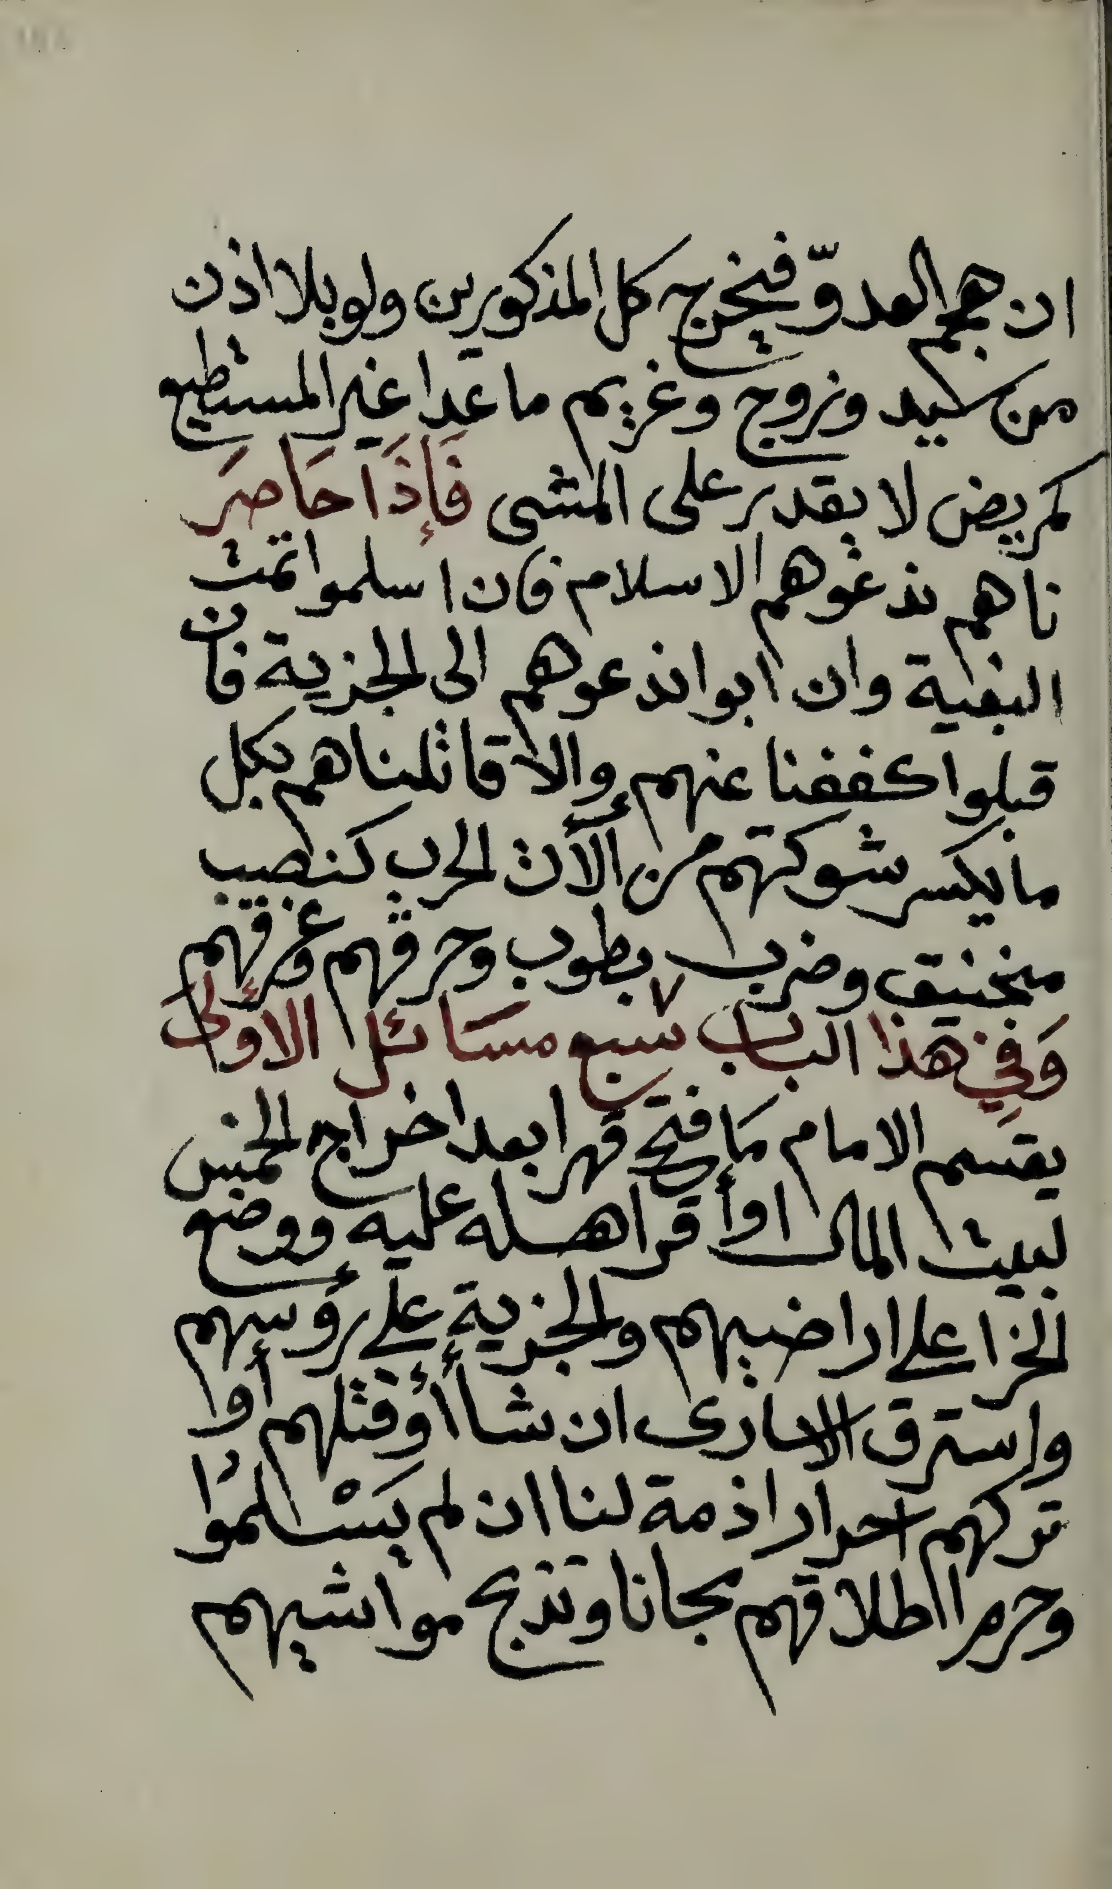 ان هجم العدوّ فيخرج كل المذكورين ولو بلا اذن
من سيد وزوج وغريم ما عدا غير المستطيع
كمريض لا يقدر على المشى فَإِذَا حَاصَرَ
ناهم ندعوهم الاسلام فان اسلموا تمت
البغية وان ابوا ندعوهم الى الجزية فان
قبلوا كففنا عنهم وإلا قاتلناهم بكل
ما يكسر شوكتهم من ألآت الحرب كنصب
منجنيق وضرب بطوب وحرقهم وغرقهم
وَفِي هذا الباب ٧ سبع مسَائل الاؤلىَ
يقسم الامام مَا فتح قهرا بعد اخراج الخمس
لبيت المال اوأ قر اهله عليه ووضع
الخرا على اراضيهم والجزية على رؤسهم
واسترق الاسارى ان شاأ أوقتلهم أوا
تركهم احرارا ذمة لنا ان لم يَسْلمُوا
وحرم ااطلاقهم مجانا وتذبح مواشيهم